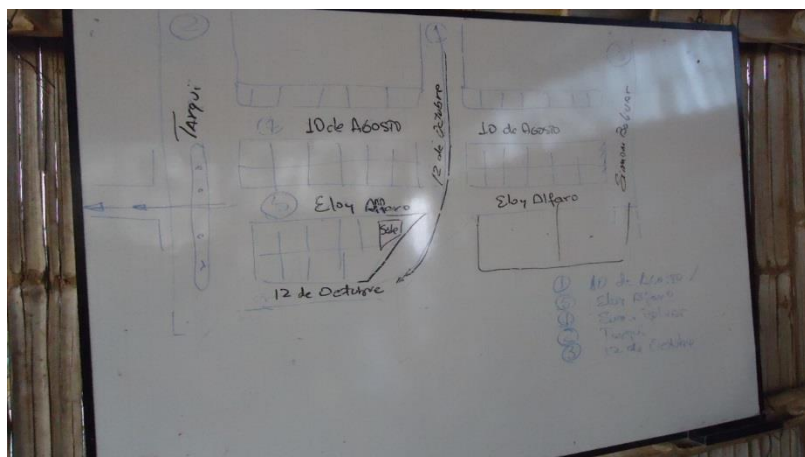 Tarqui
10 de AGOSTO
12 de Octubre
10 de AGOSTO
Simon Bolivar
Eloy Alfaro
Eloy Alfaro
Sede
12 de Octubre
10 de Agosto
Eloy Alfaro
Simon Bolivar
Tarqui
12 de Octubre